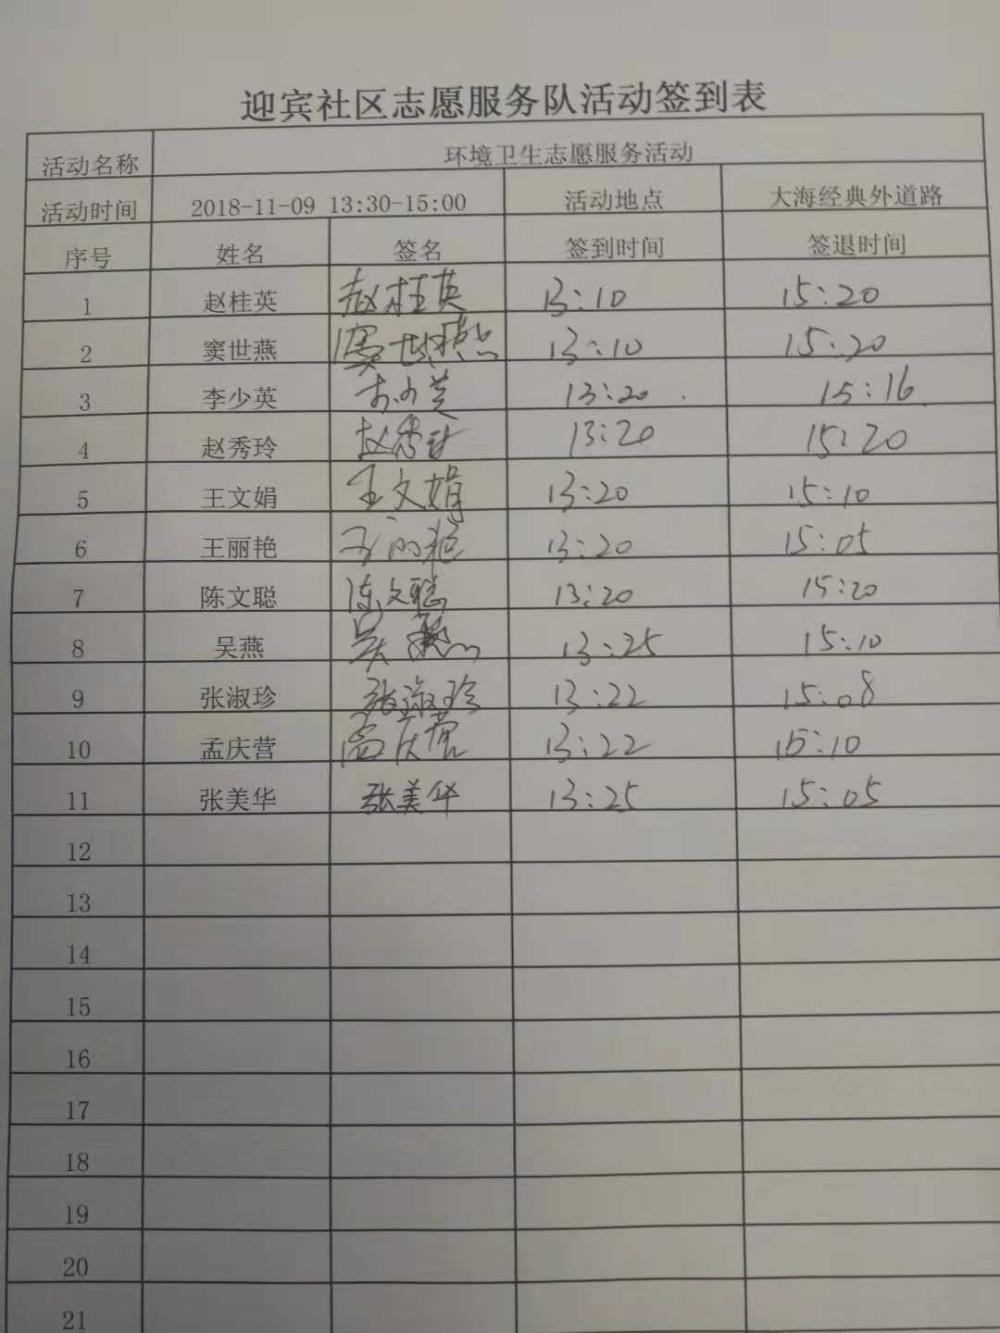 迎宾社区志愿服务队活动签到表
活动名称 环境卫生志愿服务活动
活动时间 2018-11-09 13:30-15:00 活动地点 大海经典外道路
序号 姓名 签名 签到时间 签退时间
1 赵桂英 赵桂英 13:10 15:20
2 窦世燕 窦世燕 13:10 15:20
3 李少英 李少英 13:20 15:16
4 赵秀玲 赵秀玲 13:20 15:20
5 王文娟 王文娟 13:20 15:10
6 王丽艳 王丽艳 13:20 15:05
7 陈文聪 陈文聪 13:20 15:20
8 吴燕 吴燕 13:25 15:10
9 张淑珍 张淑珍 13:22 15:08
10 孟庆营 孟庆营 13:22 15:10
11 张美华 张美华 13:25 15:05
12
13
14
15
16
17
18
19
20
21